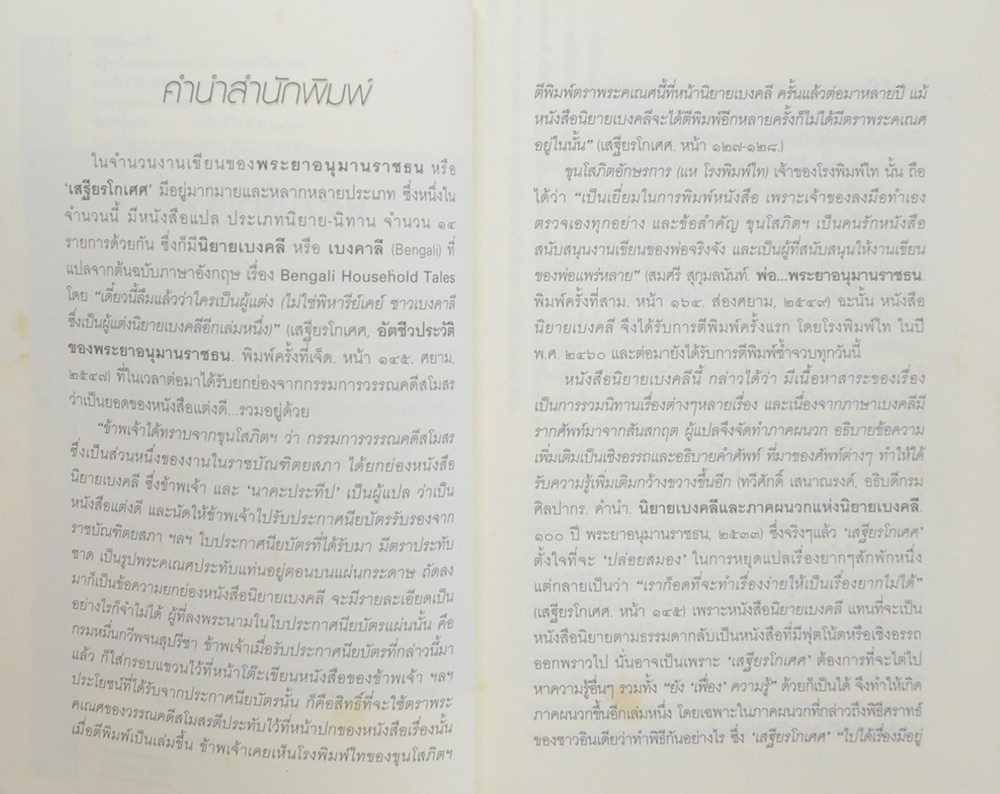 คำนำสำนักพิมพ์
ในจำนวนงานเขียนของพระยาอนุมานราชธน หรือ
'เสฐียรโกเศศ' มีอยู่มากมายและหลากหลายประเภท ซึ่งหนึ่งใน
จำนวนนี้ มีหนังสือแปล ประเภทนิยาย-นิทาน จำนวน ๑๔
รายการด้วยกัน ซึ่งก็มีนิยายเบงคลี หรือ เบงคาลี (Bengali) ที่
แปลจากต้นฉบับภาษาอังกฤษ เรื่อง Bengali Household Tales
โดย "เดี๋ยวนี้ลืมแล้วว่าใครเป็นผู้แต่ง (ไม่ใช่พิหารีย์เคย์ ชาวเบงคาลี
ซึ่งเป็นผู้แต่งนิยายเบงคลีอีกเล่มหนึ่ง)" (เสฐียรโกเศศ, อัตชีวประวัติ
ของพระยาอนุมานราชธน. พิมพ์ครั้งที่เจ็ด. หน้า ๑๔๕. ศยาม,
๒๕๔๗) ที่ในเวลาต่อมาได้รับยกย่องจากกรรมการวรรณคดีสโมสร
ว่าเป็นยอดของหนังสือแต่งดี...รวมอยู่ด้วย
"ข้าพเจ้าได้ทราบจากขุนโสภิตฯ ว่า กรรมการวรรณคดีสโมสร
ซึ่งเป็นส่วนหนึ่งของงานในราชบัณฑิตยสภา ได้ยกย่องหนังสือ
นิยายเบงคลี ซึ่งข้าพเจ้า และ 'นาคะประทีป' เป็นผู้แปล ว่าเป็น
หนังสือแต่งดี และนัดให้ข้าพเจ้าไปรับประกาศนียบัตรรับรองจาก
ราชบัณฑิตยสภา ฯลฯ ใบประกาศนียบัตรที่ได้รับมา มีตราประทับ
ชาด เป็นรูปพระคเณศประทับแท่นอยู่ตอนบนแผ่นกระดาษ ถัดลง
มาก็เป็นข้อความยกย่องหนังสือนิยายเบงคลี จะมีรายละเอียดเป็น
อย่างไรก็จำไม่ได้ ผู้ที่ลงพระนามในใบประกาศนียบัตรแผ่นนั้น คือ
กรมหมื่นกวีพจนสุปรีชา ข้าพเจ้าเมื่อรับประกาศนียบัตรที่กล่าวนี้มา
แล้ว ก็ใส่กรอบแขวนไว้ที่หน้าโต๊ะเขียนหนังสือของข้าพเจ้า ฯลฯ
ประโยชน์ที่ได้รับจากประกาศนียบัตรนั้น ก็คือสิทธิ์ที่จะใช้ตราพระ
คเณศของวรรณคดีสโมสรตีประทับไว้ที่หน้าปกของหนังสือเรื่องนั้น
เมื่อตีพิมพ์เป็นเล่มขึ้น ข้าพเจ้าเคยเห็นโรงพิมพ์ไทของขุนโสภิตฯ
ตีพิมพ์ตราพระคเณศนี้ที่หน้านิยายเบงคลี ครั้นแล้วต่อมาหลายปี แม้
หนังสือนิยายเบงคลีจะได้ตีพิมพ์อีกหลายครั้งก็ไม่ได้มีตราพระคเณศ
อยู่ในนั้น" (เสฐียรโกเศศ. หน้า ๑๒๗-๑๒๘.)
ขุนโสภิตอักษรการ (แห โรงพิมพ์ไท) เจ้าของโรงพิมพ์ไท นั้น ถือ
ได้ว่า "เป็นเยี่ยมในการพิมพ์หนังสือ เพราะเจ้าของลงมือทำเอง
ตรวจเองทุกอย่าง และข้อสำคัญ ขุนโสภิตฯ เป็นคนรักหนังสือ
สนับสนุนงานเขียนของพ่อจริงจัง และเป็นผู้ที่สนับสนุนให้งานเขียน
ของพ่อแพร่หลาย" (สมศรี สุกุมลนันทน์. พ่อ...พระยาอนุมานราชธน.
พิมพ์ครั้งที่สาม. หน้า ๑๖๔. ส่องศยาม, ๒๕๔๙) ฉะนั้น หนังสือ
นิยายเบงคลี จึงได้รับการตีพิมพ์ครั้งแรก โดยโรงพิมพ์ไท ในปี
พ.ศ. ๒๔๖๐ และต่อมายังได้รับการตีพิมพ์ซ้ำจวบทุกวันนี้
หนังสือนิยายเบงคลีนี้ กล่าวได้ว่า มีเนื้อหาสาระของเรื่อง
เป็นการรวมนิทานเรื่องต่างๆหลายเรื่อง และเนื่องจากภาษาเบงคลีมี
รากศัพท์มาจากสันสกฤต ผู้แปลจึงจัดทำภาคผนวก อธิบายข้อความ
เพิ่มเติมเป็นเชิงอรรถและอธิบายคำศัพท์ ที่มาของศัพท์ต่างๆ ทำให้ได้
รับความรู้เพิ่มเติมกว้างขวางขึ้นอีก (ทวีศักดิ์ เสนาณรงค์, อธิบดีกรม
ศิลปากร. คำนำ. นิยายเบงคลีและภาคผนวกแห่งนิยายเบงคลี.
๑๐๐ ปี พระยาอนุมานราชธน, ๒๕๓๓) ซึ่งจริงๆแล้ว 'เสฐียรโกเศศ'
ตั้งใจที่จะ 'ปล่อยสมอง' ในการหยุดแปลเรื่องยากๆสักพักหนึ่ง
แต่กลายเป็นว่า "เราก็อดที่จะทำเรื่องง่ายให้เป็นเรื่องยากไม่ได้"
(เสฐียรโกเศศ. หน้า ๑๔๕) เพราะหนังสือนิยายเบงคลี แทนที่จะเป็น
หนังสือนิยายตามธรรมดากลับเป็นหนังสือที่มีฟุตโน้ตหรือเชิงอรรถ
ออกพราวไป นั่นอาจเป็นเพราะ 'เสฐียรโกเศศ' ต้องการที่จะไต่ไป
หาความรู้อื่นๆ รวมทั้ง "ยัง 'เฟื่อง' ความรู้" ด้วยก็เป็นได้ จึงทำให้เกิด
ภาคผนวกขึ้นอีกเล่มหนึ่ง โดยเฉพาะในภาคผนวกที่กล่าวถึงพิธีศราทธ์
ของชาวอินเดียว่าทำพิธีกันอย่างไร ซึ่ง 'เสฐียรโกเศศ' "ไปได้เรื่องมีอยู่